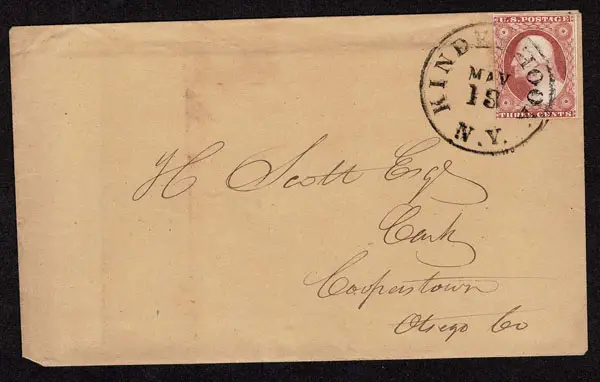 U.S. POSTAGE
THREE CENTS
KINDERHOOK
MAY
13
N.Y.
H Scott Esqr
Cash
Cooperstown
Otsego Co